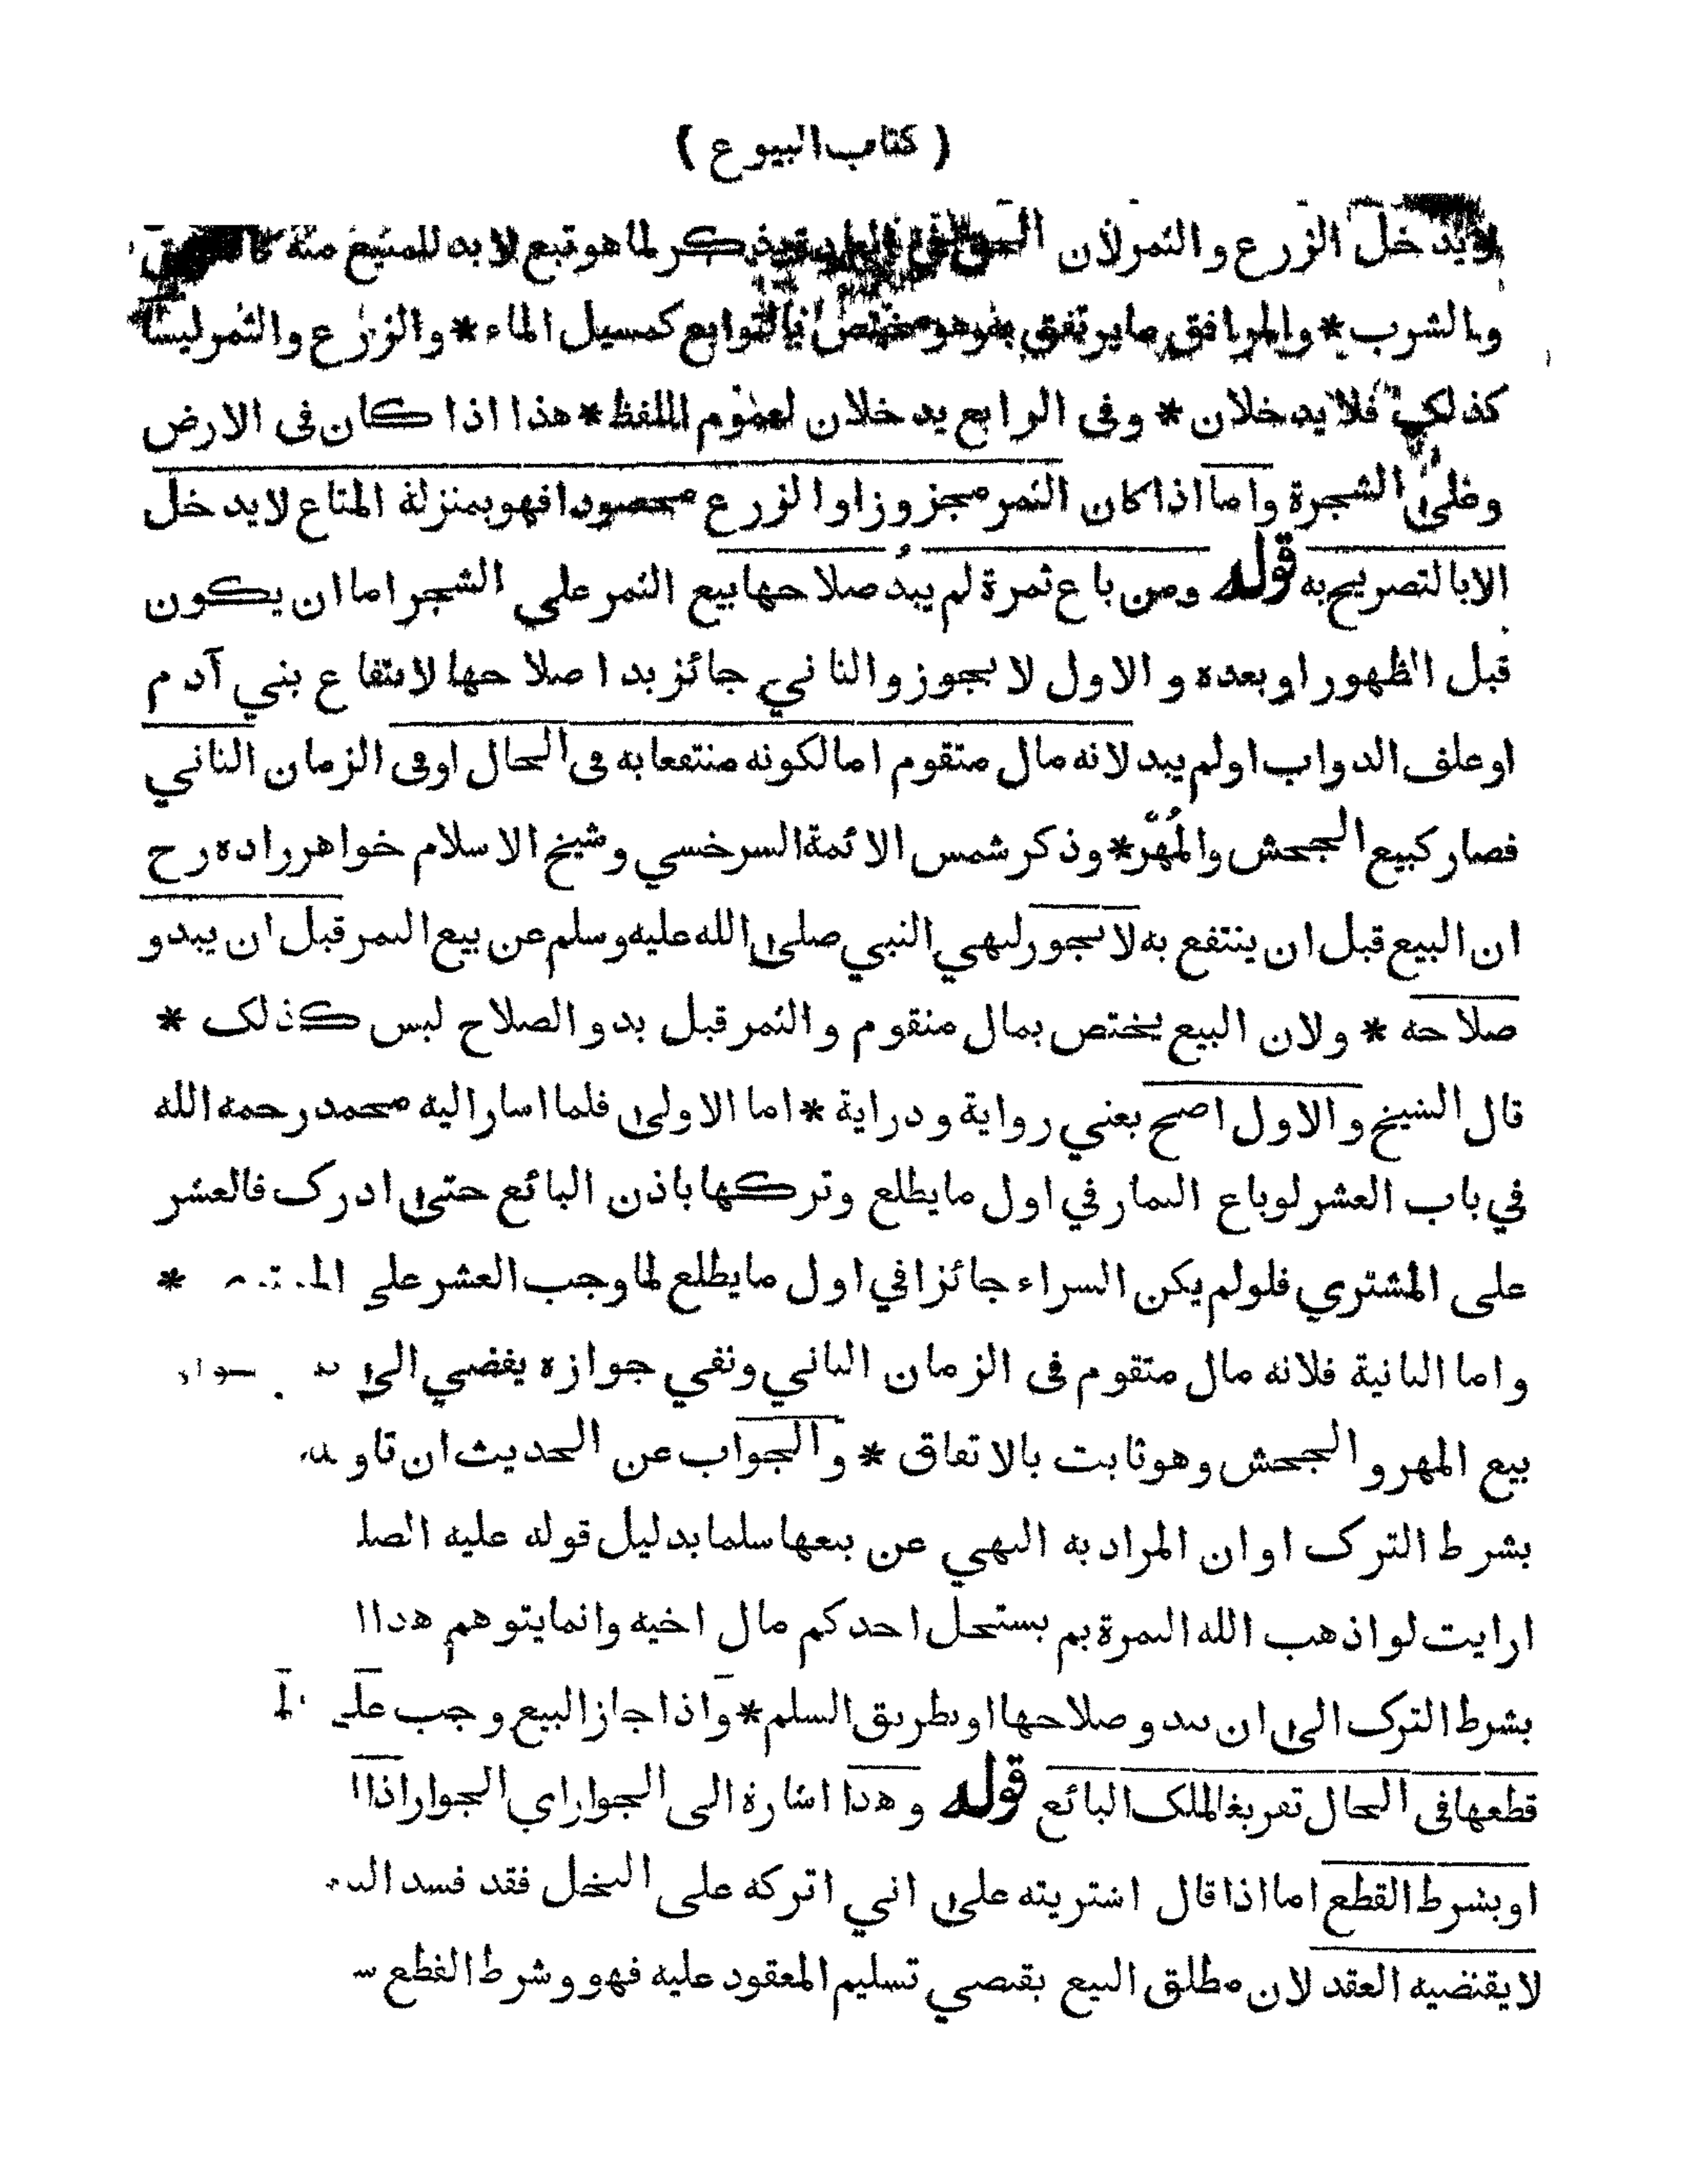 ( كتاب البيوع )
لا يدخل الزرع والثمر لأن الحقوق في العادة يذكر لما هو تبع لا بد للمبيع منه كالطريق
والشرب * والمرافق ما يرتفق به وهو مختص بالتوابع كمسيل الماء * والزرع والثمر ليسا
كذلك فلا يدخلان * وفى الرابع يدخلان لعموم اللفظ * هذا اذا كان فى الارض
وعلى الشجرة واما اذا كان الثمر مجزوزا والزرع محصودا فهو بمنزلة المتاع لا يدخل
الا بالتصريح به قوله ومن باع ثمرة لم يبدُ صلاحها بيع الثمر على الشجر اما ان يكون
قبل الظهور او بعده والاول لا يجوز والثاني جائز بدا صلاحها لانتفاع بني آدم
او علف الدواب او لم يبد لانه مال متقوم اما لكونه منتفعا به فى الحال او فى الزمان الثاني
فصار كبيع الجحش والمُهْر * وذكر شمس الائمة السرخسي وشيخ الاسلام خواهرزاده رح
ان البيع قبل ان ينتفع به لا يجوز لنهي النبي صلى الله عليه وسلم عن بيع الثمر قبل ان يبدو
صلاحه * ولان البيع يختص بمال متقوم والثمر قبل بدو الصلاح ليس كذلك *
قال الشيخ والاول اصح يعني رواية ودراية * اما الاولى فلما اشار اليه محمد رحمه الله
في باب العشر لو باع الثمار في اول ما يطلع وتركها باذن البائع حتى ادرك فالعشر
على المشتري فلو لم يكن الشراء جائزا في اول ما يطلع لما وجب العشر على *
واما الثانية فلانه مال متقوم فى الزمان الثاني ونفي جوازه يفضي الى
بيع المهر والجحش وهو ثابت بالاتفاق * والجواب عن الحديث ان تاويله
بشرط الترك او ان المراد به النهي عن بيعها سلما بدليل قوله عليه
ارايت لو اذهب الله الثمرة بم يستحل احدكم مال اخيه وانما يتوهم هذا
بشرط الترك الى ان يبدو صلاحها او بطريق السلم * واذا جاز البيع وجب على
قطعها فى الحال تفريغا لملك البائع قوله وهذا اشارة الى الجواز اي الجواز اذا
او بشرط القطع اما اذا قال اشتريته على اني اتركه على النخل فقد فسد
لا يقتضيه العقد لان مطلق البيع يقتضي تسليم المعقود عليه فهو وشرط القطع